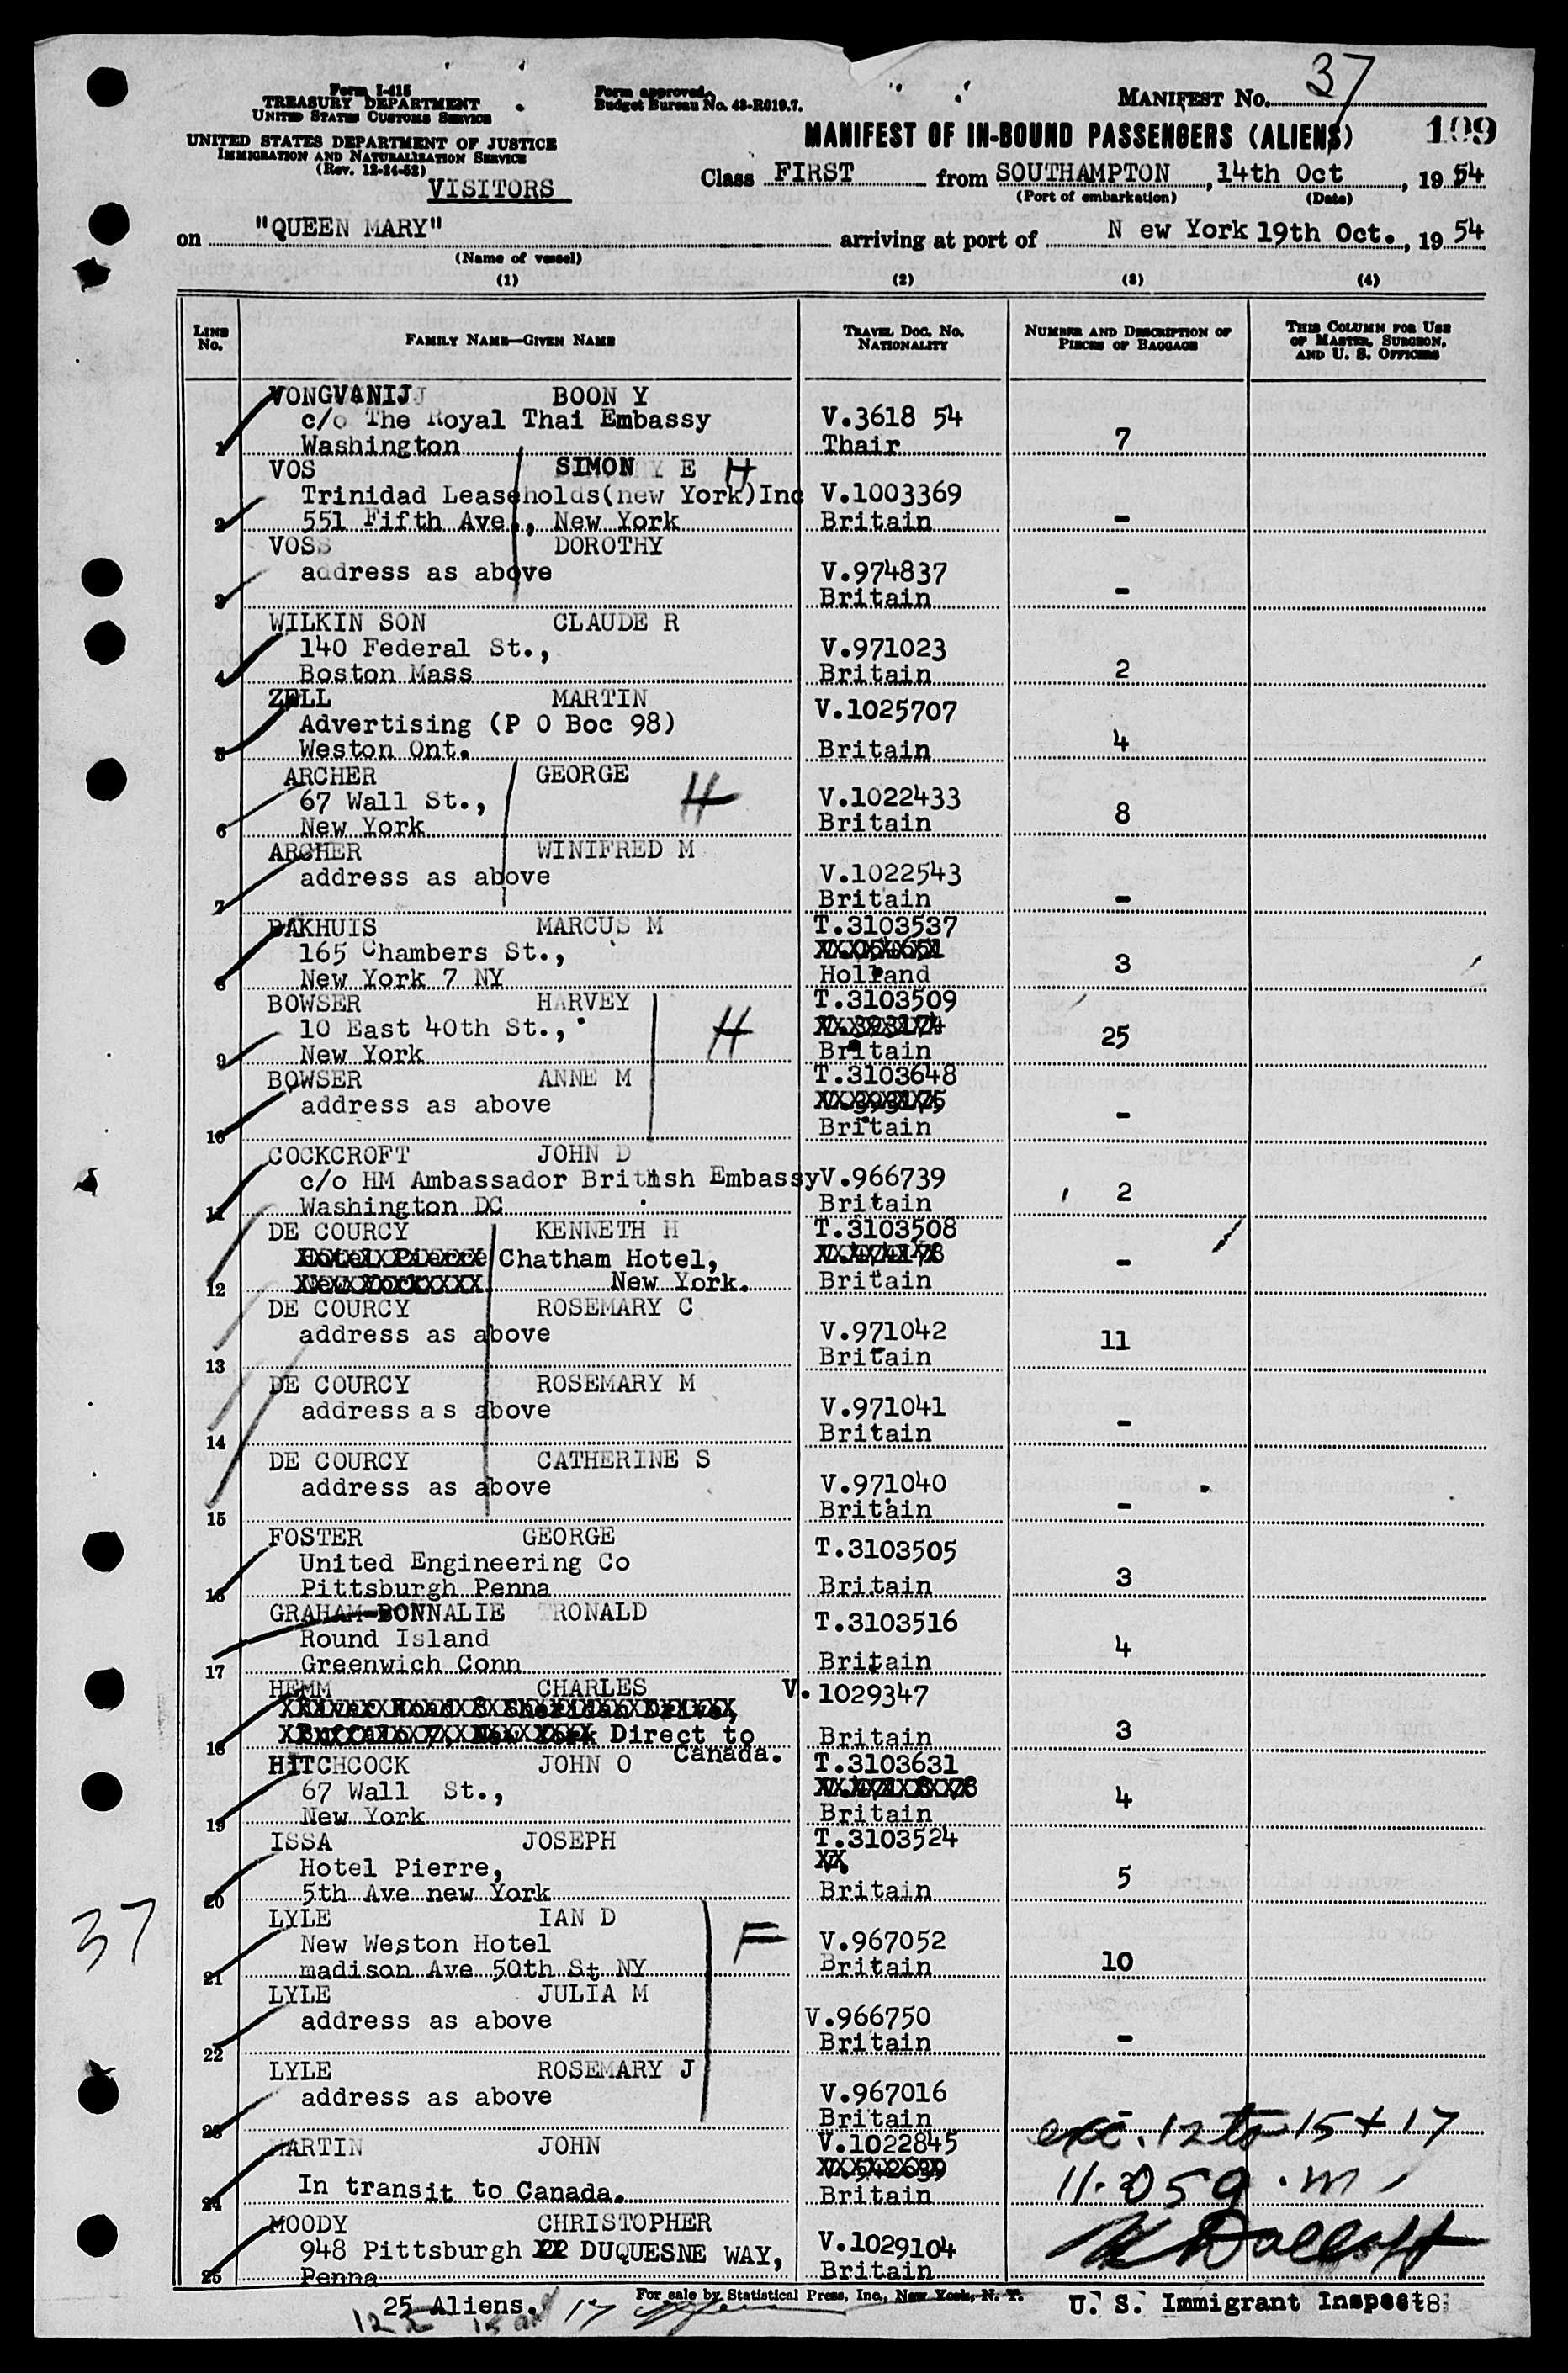 Form I-415
TREASURY DEPARTMENT
UNITED STATES CUSTOMS SERVICE
UNITED STATES DEPARTMENT OF JUSTICE
IMMIGRATION AND NATURALIZATION SERVICE
(Rev. 12-24-52)
VISITORS
Form approved.
Budget Bureau No. 43-R019.7.
MANIFEST No. 37
109
MANIFEST OF IN-BOUND PASSENGERS (ALIENS)
Class FIRST from SOUTHAMPTON, 14th Oct, 1954
(Port of embarkation) (Date)
on "QUEEN MARY" arriving at port of N ew York 19th Oct., 1954
(Name of vessel)
(1) (2) (3) (4)
LINE No. FAMILY NAME—GIVEN NAME TRAVEL DOC. NO. NATIONALITY NUMBER AND DESCRIPTION OF PIECES OF BAGGAGE THIS COLUMN FOR USE OF MASTER, SURGEON, AND U. S. OFFICERS
VONGVANIJ BOON Y
c/o The Royal Thai Embassy V.3618 54
1 Washington Thair 7
VOS SIMON E H
Trinidad Leaseholds(new York)Inc V.1003369
2 551 Fifth Ave., New York Britain -
VOSS DOROTHY
address as above V.974837
3 Britain -
WILKIN SON CLAUDE R
140 Federal St., V.971023
4 Boston Mass Britain 2
ZELL MARTIN V.1025707
Advertising (P O Boc 98)
5 Weston Ont. Britain 4
ARCHER GEORGE H
67 Wall St., V.1022433
6 New York Britain 8
ARCHER WINIFRED M
address as above V.1022543
7 Britain -
BAKHUIS MARCUS M T.3103537
165 Chambers St.,
8 New York 7 NY Holland 3
BOWSER HARVEY T.3103509
10 East 40th St., H V.393174
9 New York Britain 25
BOWSER ANNE M T.3103648
address as above V.393175
10 Britain -
COCKCROFT JOHN D
c/o HM Ambassador British Embassy V.966739
11 Washington DC Britain 2
DE COURCY KENNETH H T.3103508
Hotel Pierre Chatham Hotel,
12 New York New York. Britain -
DE COURCY ROSEMARY C
address as above V.971042
13 Britain 11
DE COURCY ROSEMARY M
address as above V.971041
14 Britain -
DE COURCY CATHERINE S
address as above V.971040
15 Britain -
FOSTER GEORGE T.3103505
United Engineering Co
16 Pittsburgh Penna Britain 3
GRAHAM-BONNALIE RONALD T.3103516
Round Island
17 Greenwich Conn Britain 4
HEMM CHARLES V.1029347
River Road & Sheridan Drive,
18 Buffalo 7, New York Direct to Canada. Britain 3
HITCHCOCK JOHN O T.3103631
67 Wall St.,
19 New York Britain 4
ISSA JOSEPH T.3103524
Hotel Pierre, V.
20 5th Ave new York Britain 5
37
LYLE IAN D F
New Weston Hotel V.967052
21 madison Ave 50th St NY Britain 10
LYLE JULIA M
address as above V.966750
22 Britain -
LYLE ROSEMARY J
address as above V.967016
23 Britain -
exc. 12 to 15 + 17
MARTIN JOHN V.1022845
V.542639
24 In transit to Canada. Britain
MOODY CHRISTOPHER
948 Pittsburgh 22 DUQUESNE WAY, V.1029104
25 Penna Britain
25 Aliens.
For sale by Statistical Press, Inc., New York, N. Y.
U. S. Immigrant Inspect